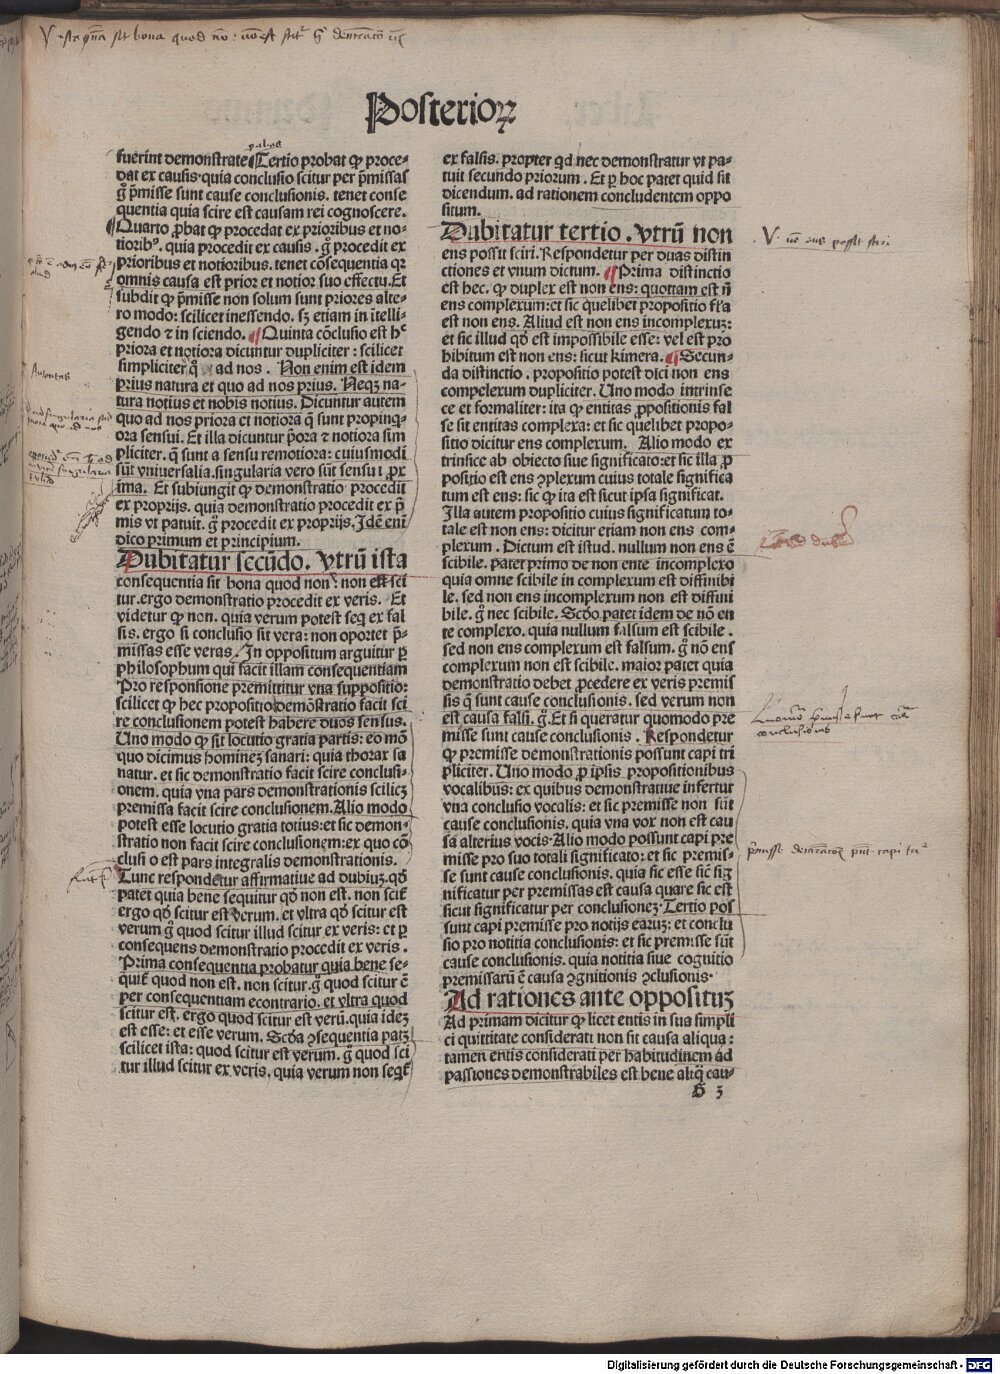 Posterioꝝ
fuerint demonstrate Tertio probat ꝙ proce-
dat ex causis quia conclusio scitur per p̄missas
g̊ p̄misse sunt cause conclusionis. tenet conse
quentia quia scire est causam rei cognoscere.
Quarto ꝓbat ꝙ procedat ex prioribus et no-
tioribꝰ. quia procedit ex causis. g̊ procedit ex
prioribus et notioribus. tenet cōsequentia qꝛ
omnis causa est prior et notior suo effectu. Et
subdit ꝙ p̄misse non solum sunt priores alte-
ro modo: scilicet inessendo. sꝫ etiam in ītelli-
gendo ⁊ in sciendo. Quinta cōclusio est hᶜ
priora et notiora dicuntur dupliciter: scilicet
simpliciter ad nos. Non enim est idem
prius natura et quo ad nos prius. Neqꝫ na-
tura notius et nobis notius. Dicuntur autem
quo ad nos priora et notiora q̄ sunt propinq̄-
ora sensui. Et illa dicuntur p̄ora ⁊ notiora sim
pliciter. q̄ sunt a sensu remotiora: cuiusmodi
sūt vniuersalia. singularia vero sūt sensui ꝓx
ima. Et subiungit ꝙ demonstratio procedit
ex proprijs. quia demonstratio procedit ex p̄
mis vt patuit. g̊ procedit ex proprijs. Idē eni
dico primum et principium.
Dubitatur secūdo. Vtrū ista
consequentia sit bona quod non: non est sci
tur. ergo demonstratio procedit ex veris. Et
videtur ꝙ non. quia verum potest seq̄ ex fal
sis. ergo si conclusio sit vera: non oportet p̄-
missas esse veras. In oppositum arguitur ꝑ
philosophum qui facit illam consequentiam
Pro responsione premittitur vna suppositio:
scilicet ꝙ hec propositio demōstratio facit sci
re conclusionem potest habere duos sensus.
Uno modo ꝙ sit locutio gratia partis: eo mō
quo dicimus hominez sanari: quia thorax sa
natur. et sic demonstratio facit scire conclusi-
onem. quia vna pars demonstrationis scilicꝫ
premissa facit scire conclusionem. Alio modo
potest esse locutio gratia totius: et sic demon-
stratio non facit scire conclusionem: ex quo cō
clusio est pars integralis demonstrationis.
Tunc respondetur affirmatiue ad dubiuꝫ. qđ
patet quia bene sequitur qđ non est. non scit̄
ergo qđ scitur est verum. et vltra qđ scitur est
verum g̊ quod scitur illud scitur ex veris: et ꝑ
consequens demonstratio procedit ex veris.
Prima consequentia probatur quia bene se-
quit̄ quod non est. non scitur. g̊ quod scitur ē
per consequentiam econtrario. et vltra quod
scitur est. ergo quod scitur est verū. quia ideꝫ
est esse: et esse verum. Scđa ꝯsequentia patꝫ
scilicet ista: quod scitur est verum. g̊ quod sci
tur illud scitur ex veris. quia verum non seqt̄
ex falsis. propter qđ nec demonstratur vt pa-
tuit secundo priorum. Et ꝑ hoc patet quid sit
dicendum. ad rationem concludentem oppo
situm.
Dubitatur tertio. Vtrū non
ens possit sciri. Respondetur per duas distin
ctiones et vnum dictum. Prima distinctio
est hec. ꝙ duplex est non ens: quoddam est nō
ens complexum: et sic quelibet propositio fl̄a
est non ens. Aliud est non ens incomplexuꝫ:
et sic illud qđ est impossibile esse: vel est pro
hibitum est non ens: sicut kimera. Secun-
da distinctio. propositio potest dici non ens
compelexum dupliciter. Uno modo intrinse
ce et formaliter: ita ꝙ entitas ꝓpositionis fal
se sit entitas complexa: et sic quelibet propo-
sitio dicitur ens complexum. Alio modo ex
trinsice ab obiecto siue significato: et sic illa ꝓ
positio est ens ꝯplexum cuius totale significa
tum est ens: sic ꝙ ita est sicut ipsa significat.
Illa autem propositio cuius significatum to-
tale est non ens: dicitur etiam non ens com-
plexum. Dictum est istud. nullum non ens ē
scibile. patet primo de non ente incomplexo
quia omne scibile incomplexum est diffinibi
le. sed non ens incomplexum non est diffini
bile. g̊ nec scibile. Scđo patet idem de nō en
te complexo. quia nullum falsum est scibile.
sed non ens complexum est falsum. g̊ nō ens
complexum non est scibile. maior patet quia
demonstratio debet ꝓcedere ex veris premis
sis q̄ sunt cause conclusionis. sed verum non
est causa falsi. g̊. Et si queratur quomodo pre
misse sunt cause conclusionis. Respondetur
ꝙ premisse demonstrationis possunt capi tri
pliciter. Uno modo ꝓ ipsis propositionibus
vocalibus: ex quibus demonstratiue infertur
vna conclusio vocalis: et sic premisse non sūt
cause conclusionis. quia vna vox non est cau
sa alterius vocis. Alio modo possunt capi pre
misse pro suo totali significato: et sic premis-
se sunt cause conclusionis. quia sic esse sic̄ sig
nificatur per premissas est causa quare sic est
sicut significatur per conclusionez. Tertio pos
sunt capi premisse pro notijs earuꝫ: et conclu
sio pro notitia conclusionis: et sic premisse sūt
cause conclusionis. quia notitia siue cognitio
premissarū ē causa ꝯgnitionis ꝯclusionis.
Ad rationes ante oppositum
Ad primam dicitur ꝙ licet entis in sua simpli
ci quitditate considerati non sit causa aliqua:
tamen entis considerati per habitudinem ad
passiones demonstrabiles est bene aliq̄ cau-
G 3
Digitalisierung gefördert durch die Deutsche Forschungsgemeinschaft - DFG